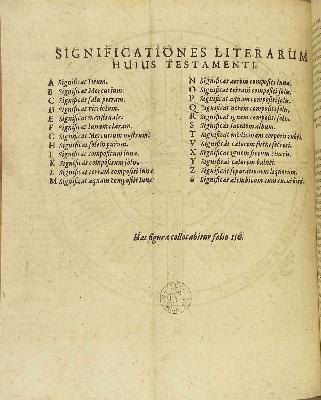 SIGNIFICATIONES LITERARUM
HUIUS TESTAMENTI.
A Significat Deum.
B Significat Mercurium.
C Significat salis petram.
D Significat vitriolum.
E Significat menstruale.
F Significat lunam claram.
G Significat Mercurium nostrum.
H Significat solem purum.
I Significat compositum lunæ.
K Significat compositum solis.
L Significat terram compositi lunæ.
M Significat aquam compositi lunæ.
N Significat aerem compositi lunæ.
O Significat terram compositi solis.
P Significat aquam compositi solis.
Q Significat aerem compositi solis.
R Significat ignem compositi solis.
S Significat lapidem album.
T Significat medicinam corporis rubei.
V Significat calorem
X Significat ignem siccum cineris.
Y Significat calorem balnei.
Z Significat separationem liquorum.
Significat alembicum cum cucurbita.
Hæc figura collocabitur folio 116.